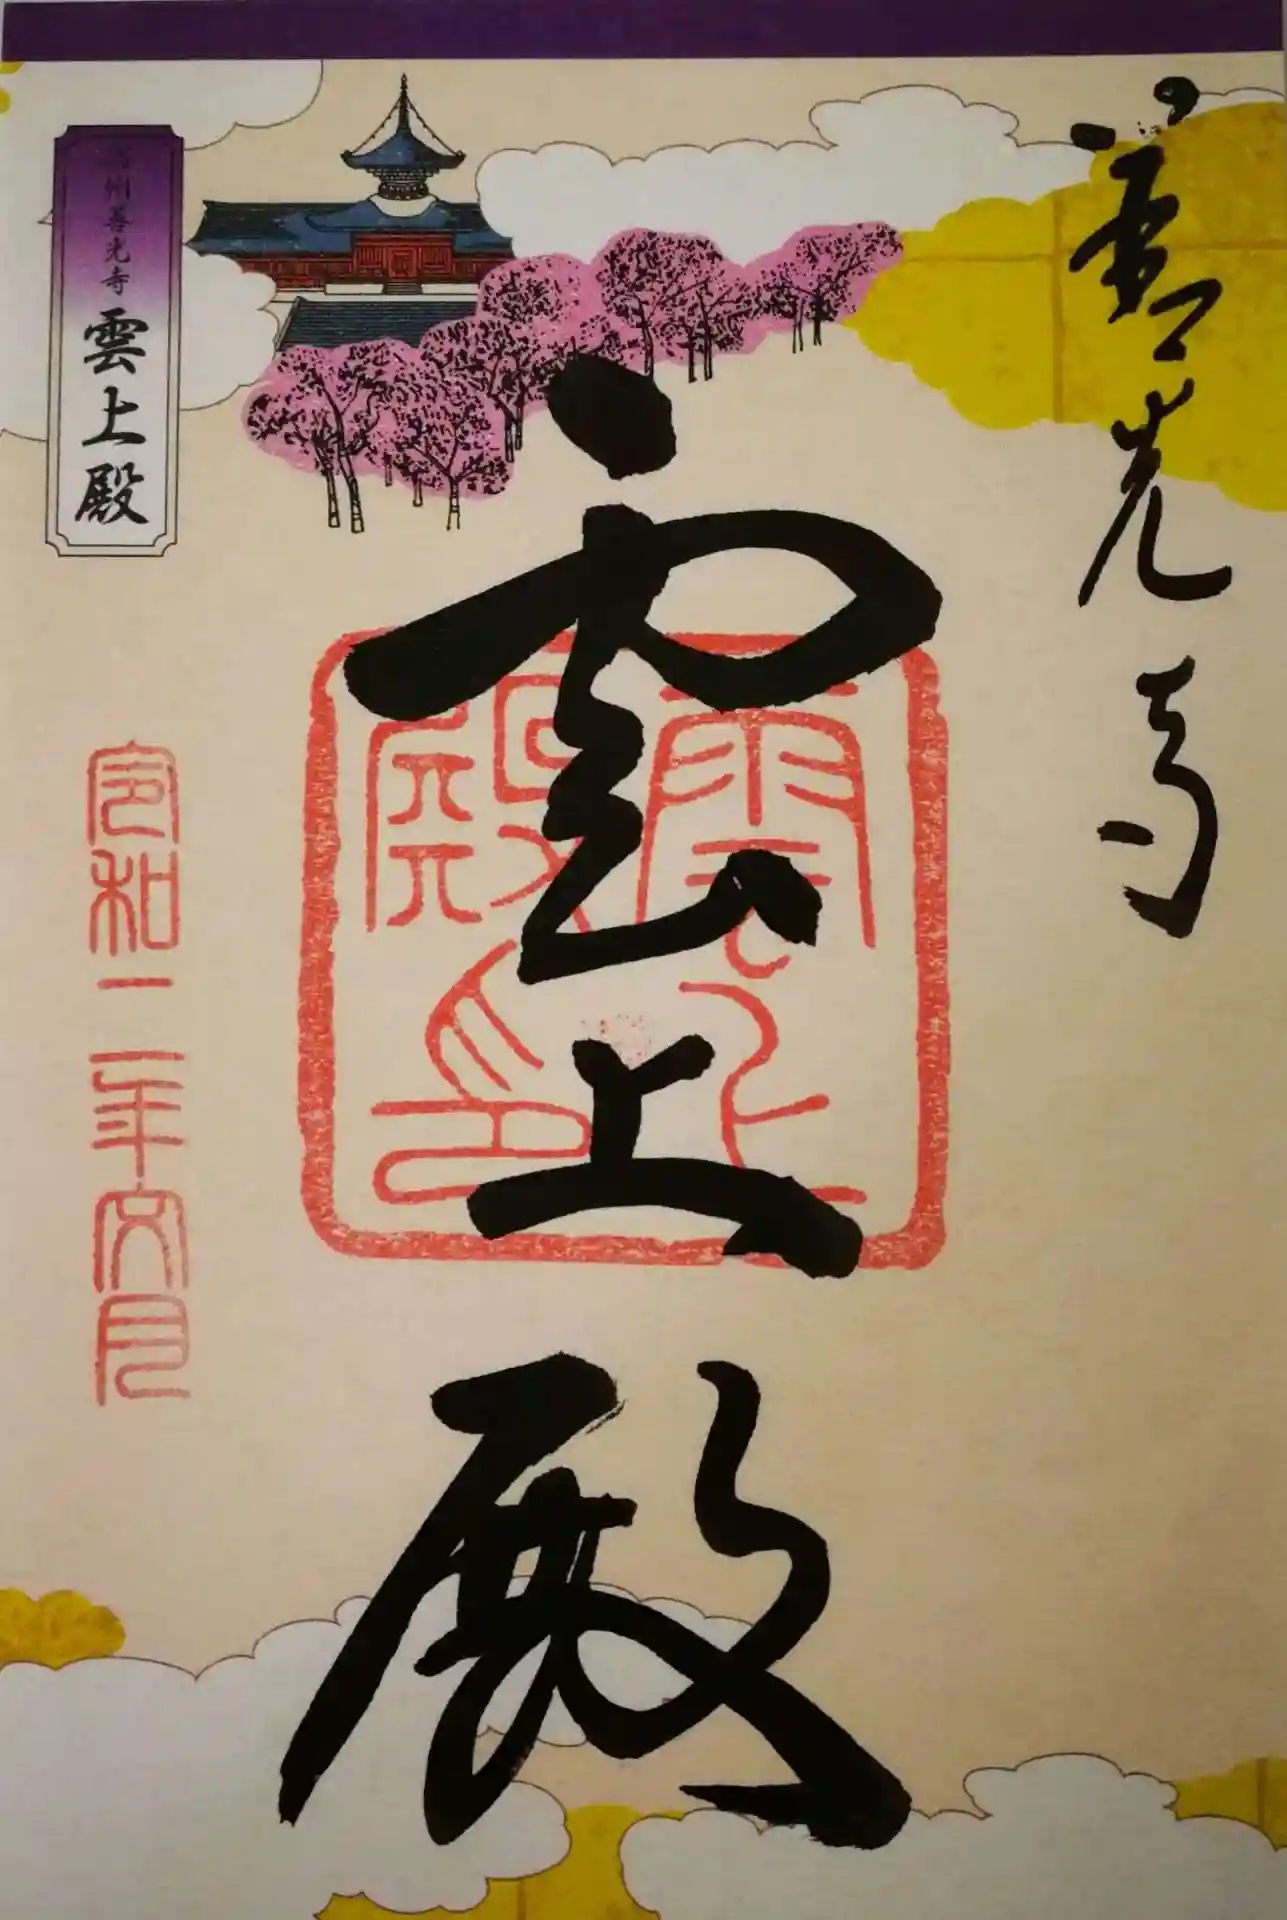 善光寺
雲上殿
雲上殿印
信州善光寺
雲上殿
令和二年六月